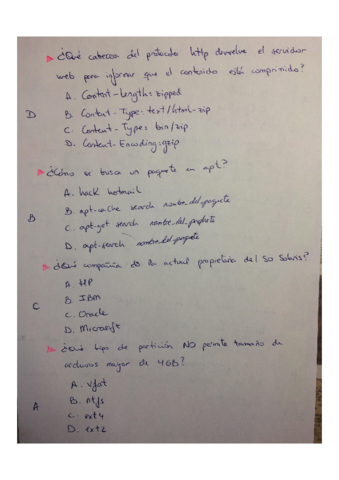 ¿Qué cabecera del protocolo http devuelve el servidor
web para informar que el contenido está comprimido?
A. Content-Length: zipped
D
B. Content-Type: text/html-zip
C. Content-Type: bin/zip
D. Content-Encoding: gzip
¿Cómo se busca un paquete en apt?
A. hack hotmail
B
B apt-cache search nombre_del_paquete
C. apt-get search nombre_del_paquete
D. apt-search nombre_del_paquete
¿Qué compañía es la actual propietaria del SO Solaris?
A HP
B. IBM
C
C. Oracle
D. Microsoft
¿Qué tipo de partición NO permite tamaño de
archivos mayor de 4GB?
A. vfat
A
B. ntfs
C. ext4
D. ext2